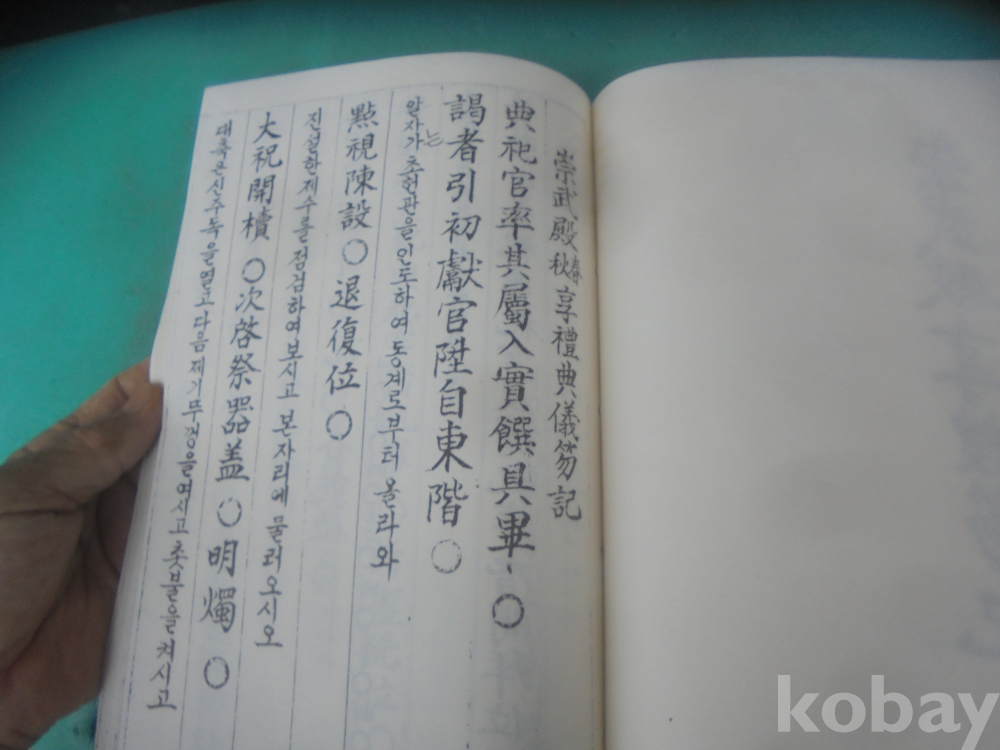 崇武殿春秋享禮典儀笏記
典祀官率其屬入實饌具畢、○
謁者引初獻官陞自東階○
알자가는초헌관을인도하여동계로부터올라와
點視陳設○退復位○
진설한제수를점검하여보시고 본자리에 물러오시오
大祝開櫝○次啓祭器盖○明燭○
대축은신주독을열고다음제기뚜껑을여시고 촛불을켜시고
kobay